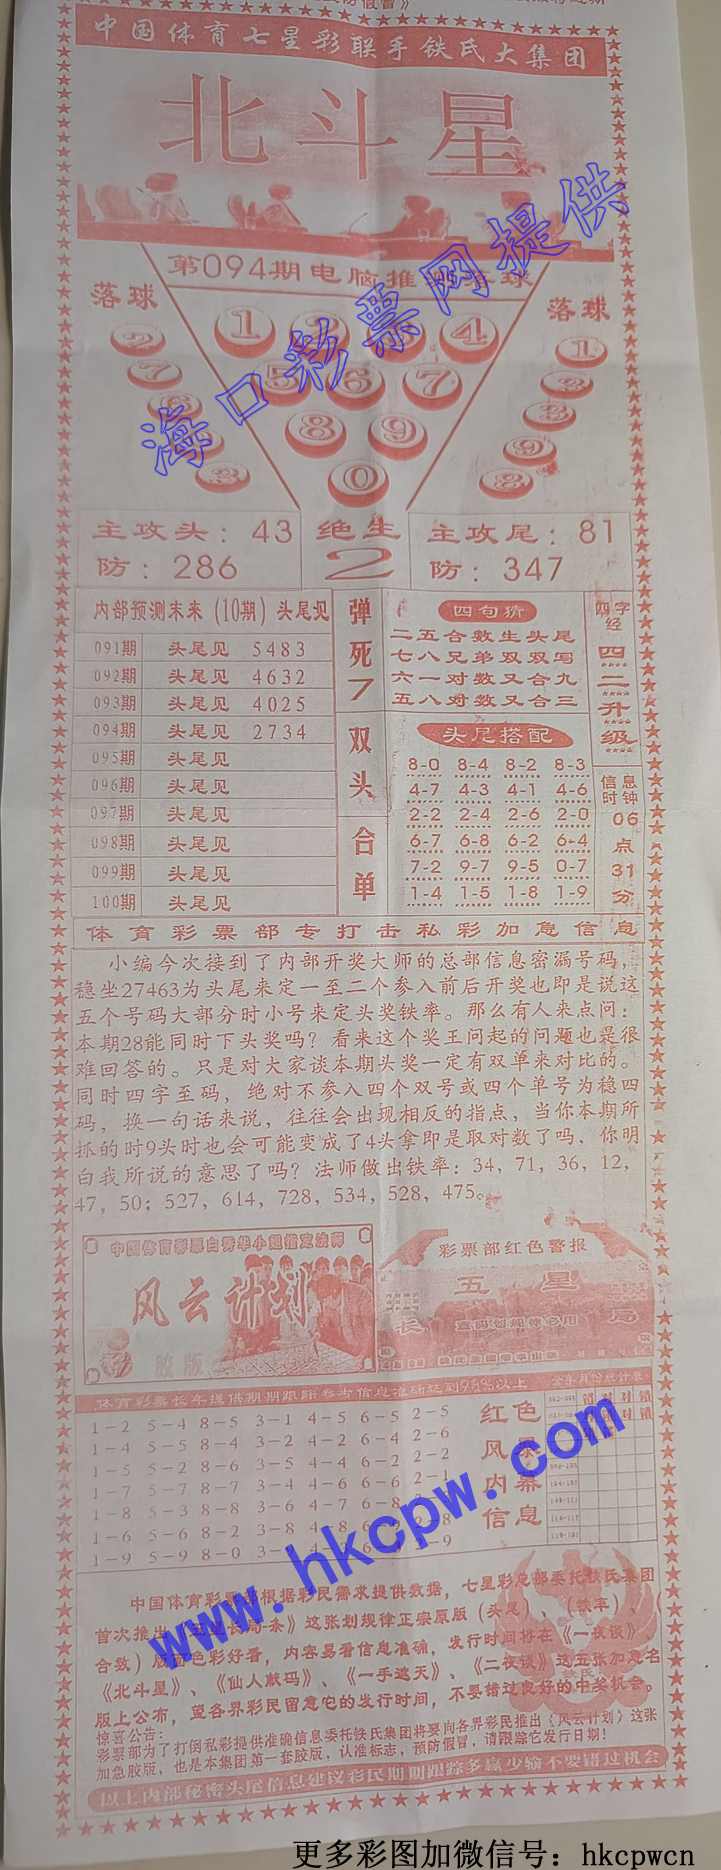 中国体育七星彩联手铁氏大集团
北斗星
第094期电脑推测落球
落球
落球
1 2 3 4
5 6 7
8 9
0
主攻头：43
防：286
绝生
2
主攻尾：81
防：347
内部预测未来（10期）头尾见
091期 头尾见 5483
092期 头尾见 4632
093期 头尾见 4025
094期 头尾见 2734
095期 头尾见
096期 头尾见
097期 头尾见
098期 头尾见
099期 头尾见
100期 头尾见
弹死7双头合单
四句猜
二五合数生头尾
七八兄弟双双写
六一对数又合九
五八对数又合三
头尾搭配
8-0 8-4 8-2 8-3
4-7 4-3 4-1 4-6
2-2 2-4 2-6 2-0
6-7 6-8 6-2 6-4
7-2 9-7 9-5 0-7
1-4 1-5 1-8 1-9
四字经
四二升级
信息时钟
06点31分
体育彩票部专打击私彩加急信息
小编今次接到了内部开奖大师的总部信息密漏号码，
稳坐27463为头尾来定一至二个参入前后开奖也即是说这
五个号码大部分时小号来定头奖铁率。那么有人来点问：
本期28能同时下头奖吗？看来这个奖王问起的问题也是很
难回答的。只是对大家谈本期头奖一定有双单来对比的。
同时四字至码，绝对不参入四个双号或四个单号为稳四
码，换一句话来说，往往会出现相反的指点，当你本期所
抓的时9头时也会可能变成了4头拿即是取对数了吗，你明
白我所说的意思了吗？法师做出铁率：34，71，36，12，
47，50；527，614，728，534，528，475。
中国体育彩票白秀华小姐指定法师
风云计划
胶版
彩票部红色警报
五星
局长
体育彩票长年提供期期跟踪参考信息准动达到95%以上
1-2 5-4 8-5 3-1 4-5 6-5 2-5
1-4 5-5 8-4 3-2 4-2 6-4 2-6
1-5 5-2 8-6 3-5 4-4 6-2 2-2
1-7 5-7 8-7 3-4 4-6 6-6 2-1
1-8 5-3 8-8 3-6 4-7 6-8
1-6 5-6 8-2 3-8 4-8
1-9 5-9 8-0
红色风暴内幕信息
中国体育彩票部根据彩民需求提供数据，七星彩总部委托铁氏集团
首次推出《五星长奇条》这张划规律正宗原版（头尾）、（铁率）、
合数）版面色彩好看，内容易看信息准确，发行时间将在《一夜谈》
《北斗星》、《仙人献码》、《一手遮天》、《二夜谈》这五张加急名
版上公布，望各界彩民留意它的发行时间，不要错过良好的中奖机会。
惊喜公告：
彩票部为了打倒私彩提供准确信息委托铁氏集团将要向各界彩民推出《风云计划》这张
加急胶版，也是本集团第一套胶版，认准标志，预防假冒，请跟踪它发行日期！
以上内部秘密头尾信息建议彩民期期跟踪多赢少输不要错过机会
海口彩票网提供
www.hkcpw.com
更多彩图加微信号：hkcpwcn